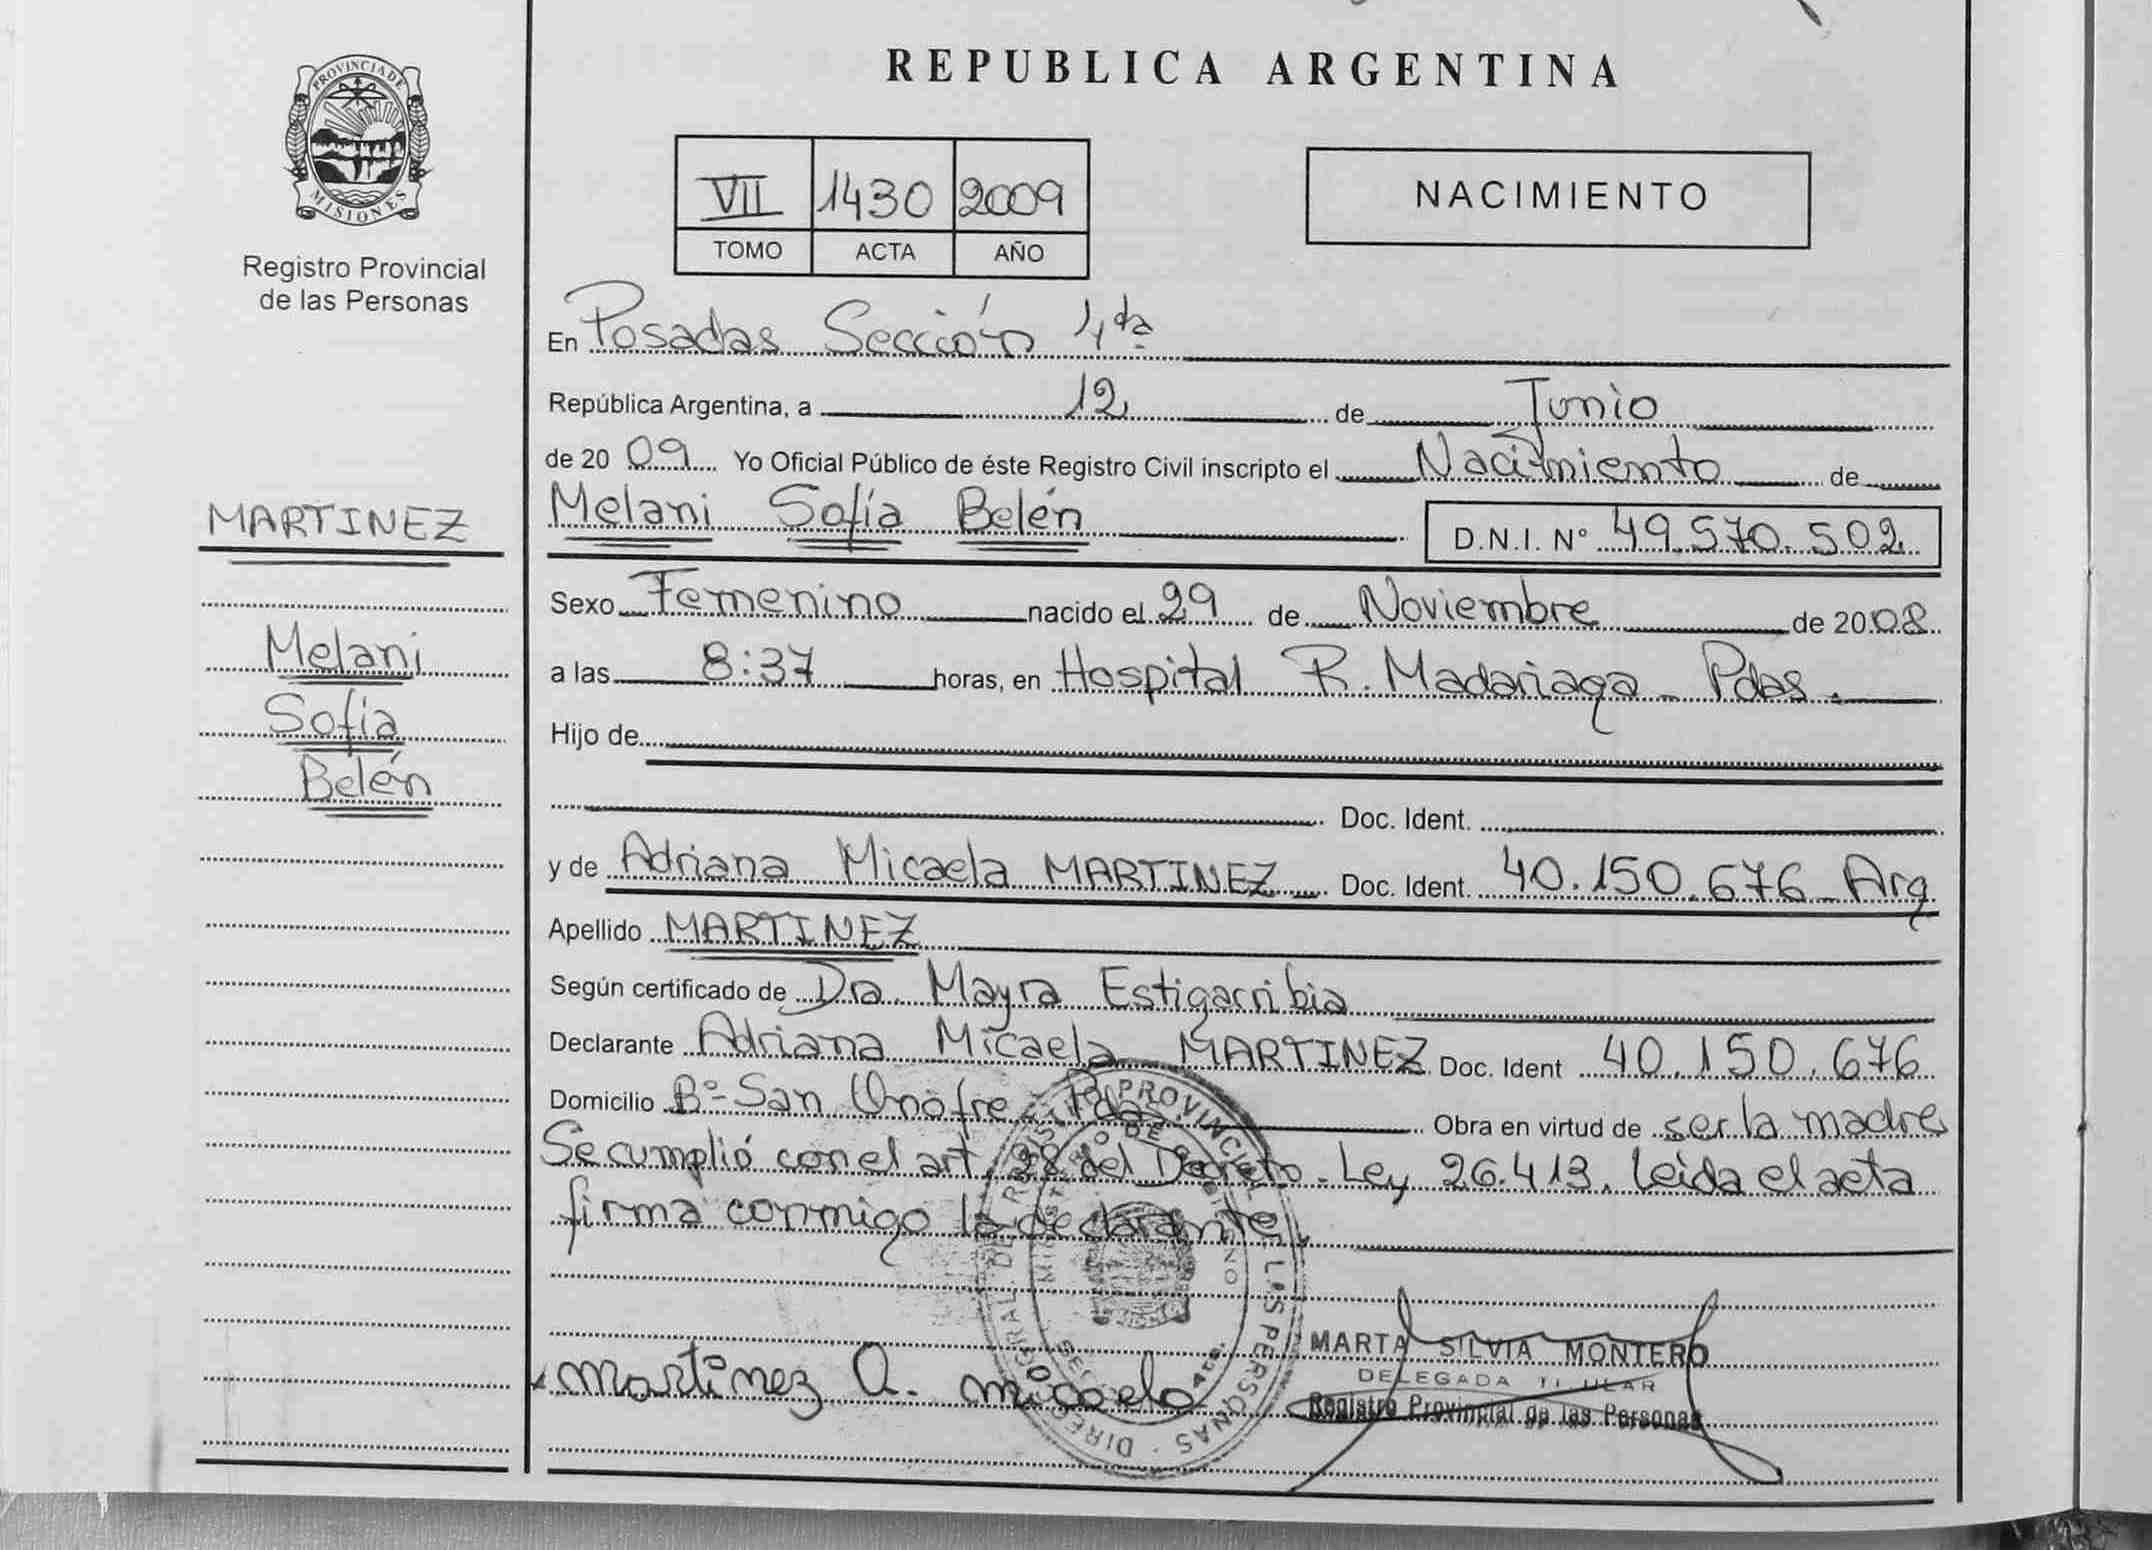 REPUBLICA ARGENTINA
PROVINCIA DE
MISIONES
Registro Provincial
de las Personas
VII 1430 2009
TOMO ACTA AÑO
NACIMIENTO
En Posadas Sección 4ta
República Argentina, a 12 de Junio
de 2009 Yo Oficial Público de éste Registro Civil inscripto el Nacimiento de
Melani Sofía Belén D.N.I. Nº 49.570.502
Sexo Femenino nacido el 29 de Noviembre de 2008
a las 8:37 horas, en Hospital R. Madariaga - Pdas.
Hijo de
Doc. Ident.
y de Adriana Micaela MARTINEZ Doc. Ident. 40.150.676 - Arg
Apellido MARTINEZ
Según certificado de Dra. Mayra Estigarribia
Declarante Adriana Micaela MARTINEZ Doc. Ident 40.150.676
Domicilio Bº San Onofre - Pdas Obra en virtud de ser la madre
Se cumplió con el art. 28 del Decreto - Ley 26.413. Leída el acta
firma conmigo la declarante.
MARTINEZ
Melani
Sofía
Belén
Martinez A. micaela
MARTA SILVIA MONTERO
DELEGADA TITULAR
Registro Provincial de las Personas
PROVINCIAL DE LAS PERSONAS